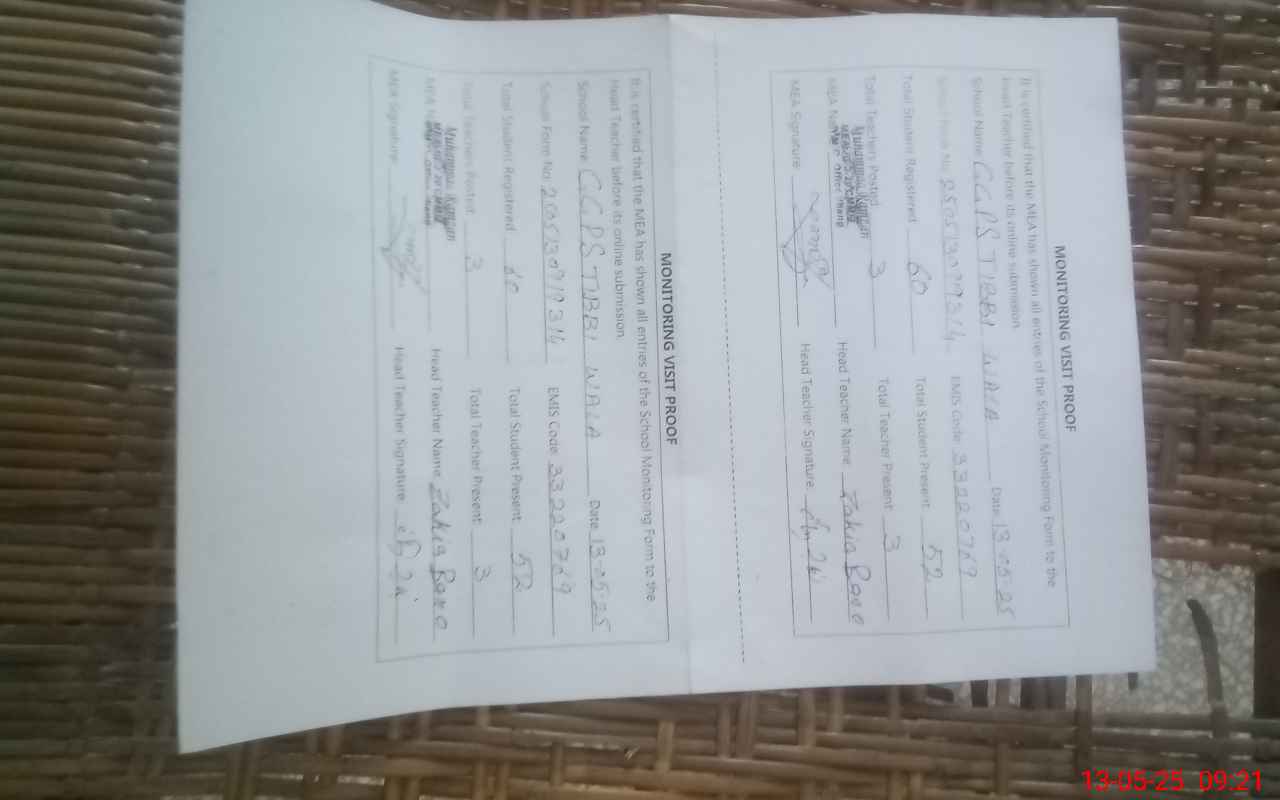 MONITORING VISIT PROOF
It is certified that the MEA has shown all entries of the School Monitoring Form to the
Head Teacher before its online submission.
School Name GGPS TIBBI WALA Date 13-05-25
School Form No EMIS Code 33220769
Total Student Registered 60 Total Student Present 52
Total Teachers Posted 3 Total Teacher Present 3
MEA Name Muhammad Head Teacher Name Zakia Bano
MEA Signature Head Teacher Signature
MONITORING VISIT PROOF
It is certified that the MEA has shown all entries of the School Monitoring Form to the
Head Teacher before its online submission.
School Name GGPS TIBBI WALA Date 13-05-25
School Form No EMIS Code 33220769
Total Student Registered 60 Total Student Present 52
Total Teachers Posted 3 Total Teacher Present 3
MEA Name Muhammad Head Teacher Name Zakia Bano
MEA Signature Head Teacher Signature
13-05-25 09:21